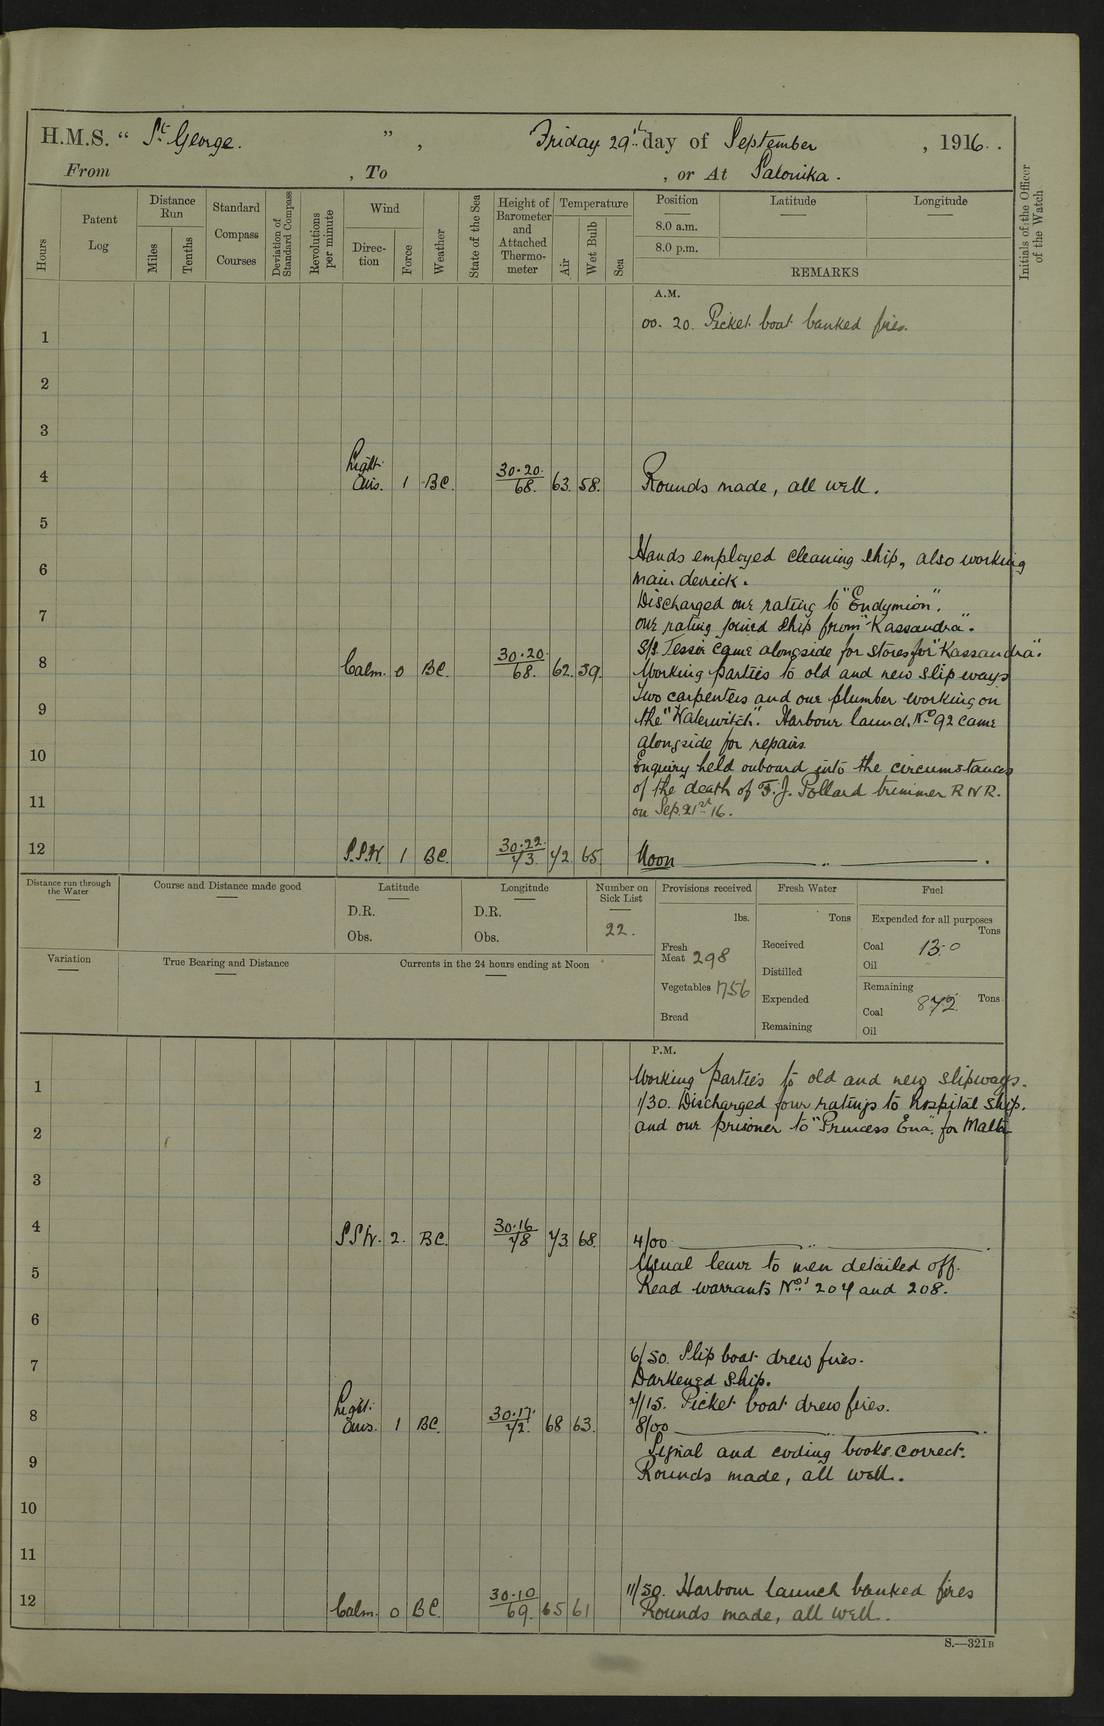 H.M.S. " St George. ", Friday 29th day of September, 1916.
From , To , or At Salonika.
Hours
Patent Log
Distance Run
Miles
Tenths
Standard Compass Courses
Deviation of Standard Compass
Revolutions per minute
Wind
Direction
Force
Weather
State of the Sea
Height of Barometer and Attached Thermometer
Temperature
Air
Wet Bulb
Sea
Position Latitude Longitude
8.0 a.m.
8.0 p.m.
REMARKS
Initials of the Officer of the Watch
A.M.
00. 20. Picket boat banked fires.
1
2
3
4 Light Airs. 1 BC. 30.20. 68. 63. 58. Rounds made, all well.
5
Hands employed cleaning ship, also working
6
main derrick.
Discharged one rating to "Endymion".
7
one rating joined ship from "Kassandra".
came alongside for stores for "Kassandra".
8 Calm. 0 BC. 30.20 68. 62. 59. Working parties to old and new slipways
Two carpenters and one plumber working on
9
the "Waterwitch". Harbour launch No 92 came
alongside for repairs.
10
Enquiry held onboard into the circumstances
of the death of F. J. Pollard trimmer RNR.
11
on Sep. 21st 16.
12 S.S.W. 1 BC. 30.22. 73. 72. 65. Noon
Distance run through the Water
Course and Distance made good
Latitude
D.R.
Obs.
Longitude
D.R.
Obs.
Number on Sick List
22.
Provisions received
lbs.
Fresh Meat 298
Vegetables 1756
Bread
Fresh Water
Tons
Received
Distilled
Expended
Remaining
Fuel
Expended for all purposes
Tons
Coal 13.0
Oil
Remaining
Coal 872 Tons
Oil
Variation
True Bearing and Distance
Currents in the 24 hours ending at Noon
P.M.
Working parties to old and new slipways.
1
1/30. Discharged four ratings to hospital ship.
2
and one prisoner to "Princess Ena". for Malta
3
4 SSW. 2. BC. 30.16 78 73 68. 4/00
Usual leave to men detailed off.
5
Read warrants Nos 207 and 208.
6
7
6/50. Slip boat drew fires.
Darkened ship.
7/15. Picket boat drew fires.
8 Light Airs. 1 BC. 30.17. 72. 68 63. 8/00
Signal and coding books correct.
9
Rounds made, all well.
10
11
11/50. Harbour launch banked fires
12 Calm. 0 BC. 30.10 69. 65 61 Rounds made, all well.
S.—321B